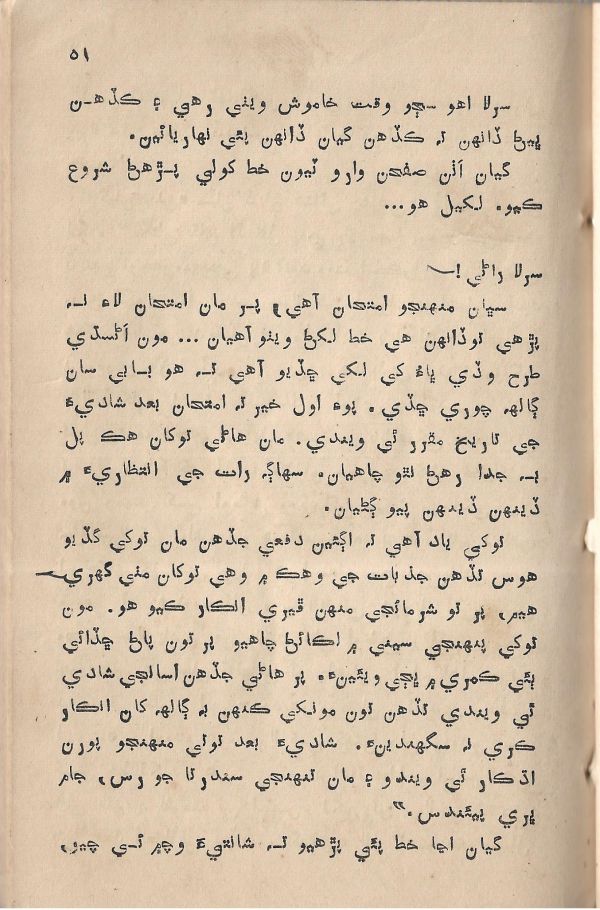 ٥١
سرلا اهو سڄو وقت خاموش ويٺي رهي ۽ ڪڏهن
ڀيڻ ڏانهن تہ ڪڏهن گيان ڏانهن پئي نهاريائين.
گيان اٺن صفحن وارو ٽيون خط کولي پڙهڻ شروع
ڪيو. لکيل هو...
سرلا راڻي! —
سڀان منهنجو امتحان آهي، پر مان امتحان لاءِ نہ
پڙهي توڏانهن هي خط لکڻ ويٺو آهيان ... مون اَڻسڌي
طرح وڏي ڀاءُ کي لکي ڇڏيو آهي تہ هو بابي سان
ڳالهہ چوري ڇڏي. پوءِ اول خير تہ امتحان بعد شاديءَ
جي تاريخ مقرر ٿي ويندي. مان هاڻي توکان هڪ پل
بہ جدا رهڻ نٿو چاهيان. سهاڳ رات جي انتظاريءَ ۾
ڏينهن ڏينهن پيو ڳڻيان.
توکي ياد آهي تہ اڳئين دفعي جڏهن مان توکي گڏيو
هوس تڏهن جذبات جي وهڪ ۾ وهي توکان مٺي گهري —
هيم، پر تو شرمائجي منهن ڦيري انڪار ڪيو هو. مون
توکي پنهنجي سيني ۾ لڪائڻ چاهيو پر تون پاڻ ڇڏائي
ٻئي ڪمري ۾ ڀڄي ويئينءَ. پر هاڻي جڏهن اسانجي شادي
ٿي ويندي تڏهن تون مونکي ڪنهن بہ ڳالهہ کان انڪار
ڪري نہ سگهندينءَ. شاديءَ بعد توتي منهنجو پورن
اڌڪار ٿي ويندو ۽ مان تنهنجي سندرتا جو رس، جام
ڀري پيئندس."
گيان اڃا خط پئي پڙهيو تہ شانتيءَ وچ ۾ ئي چيو،